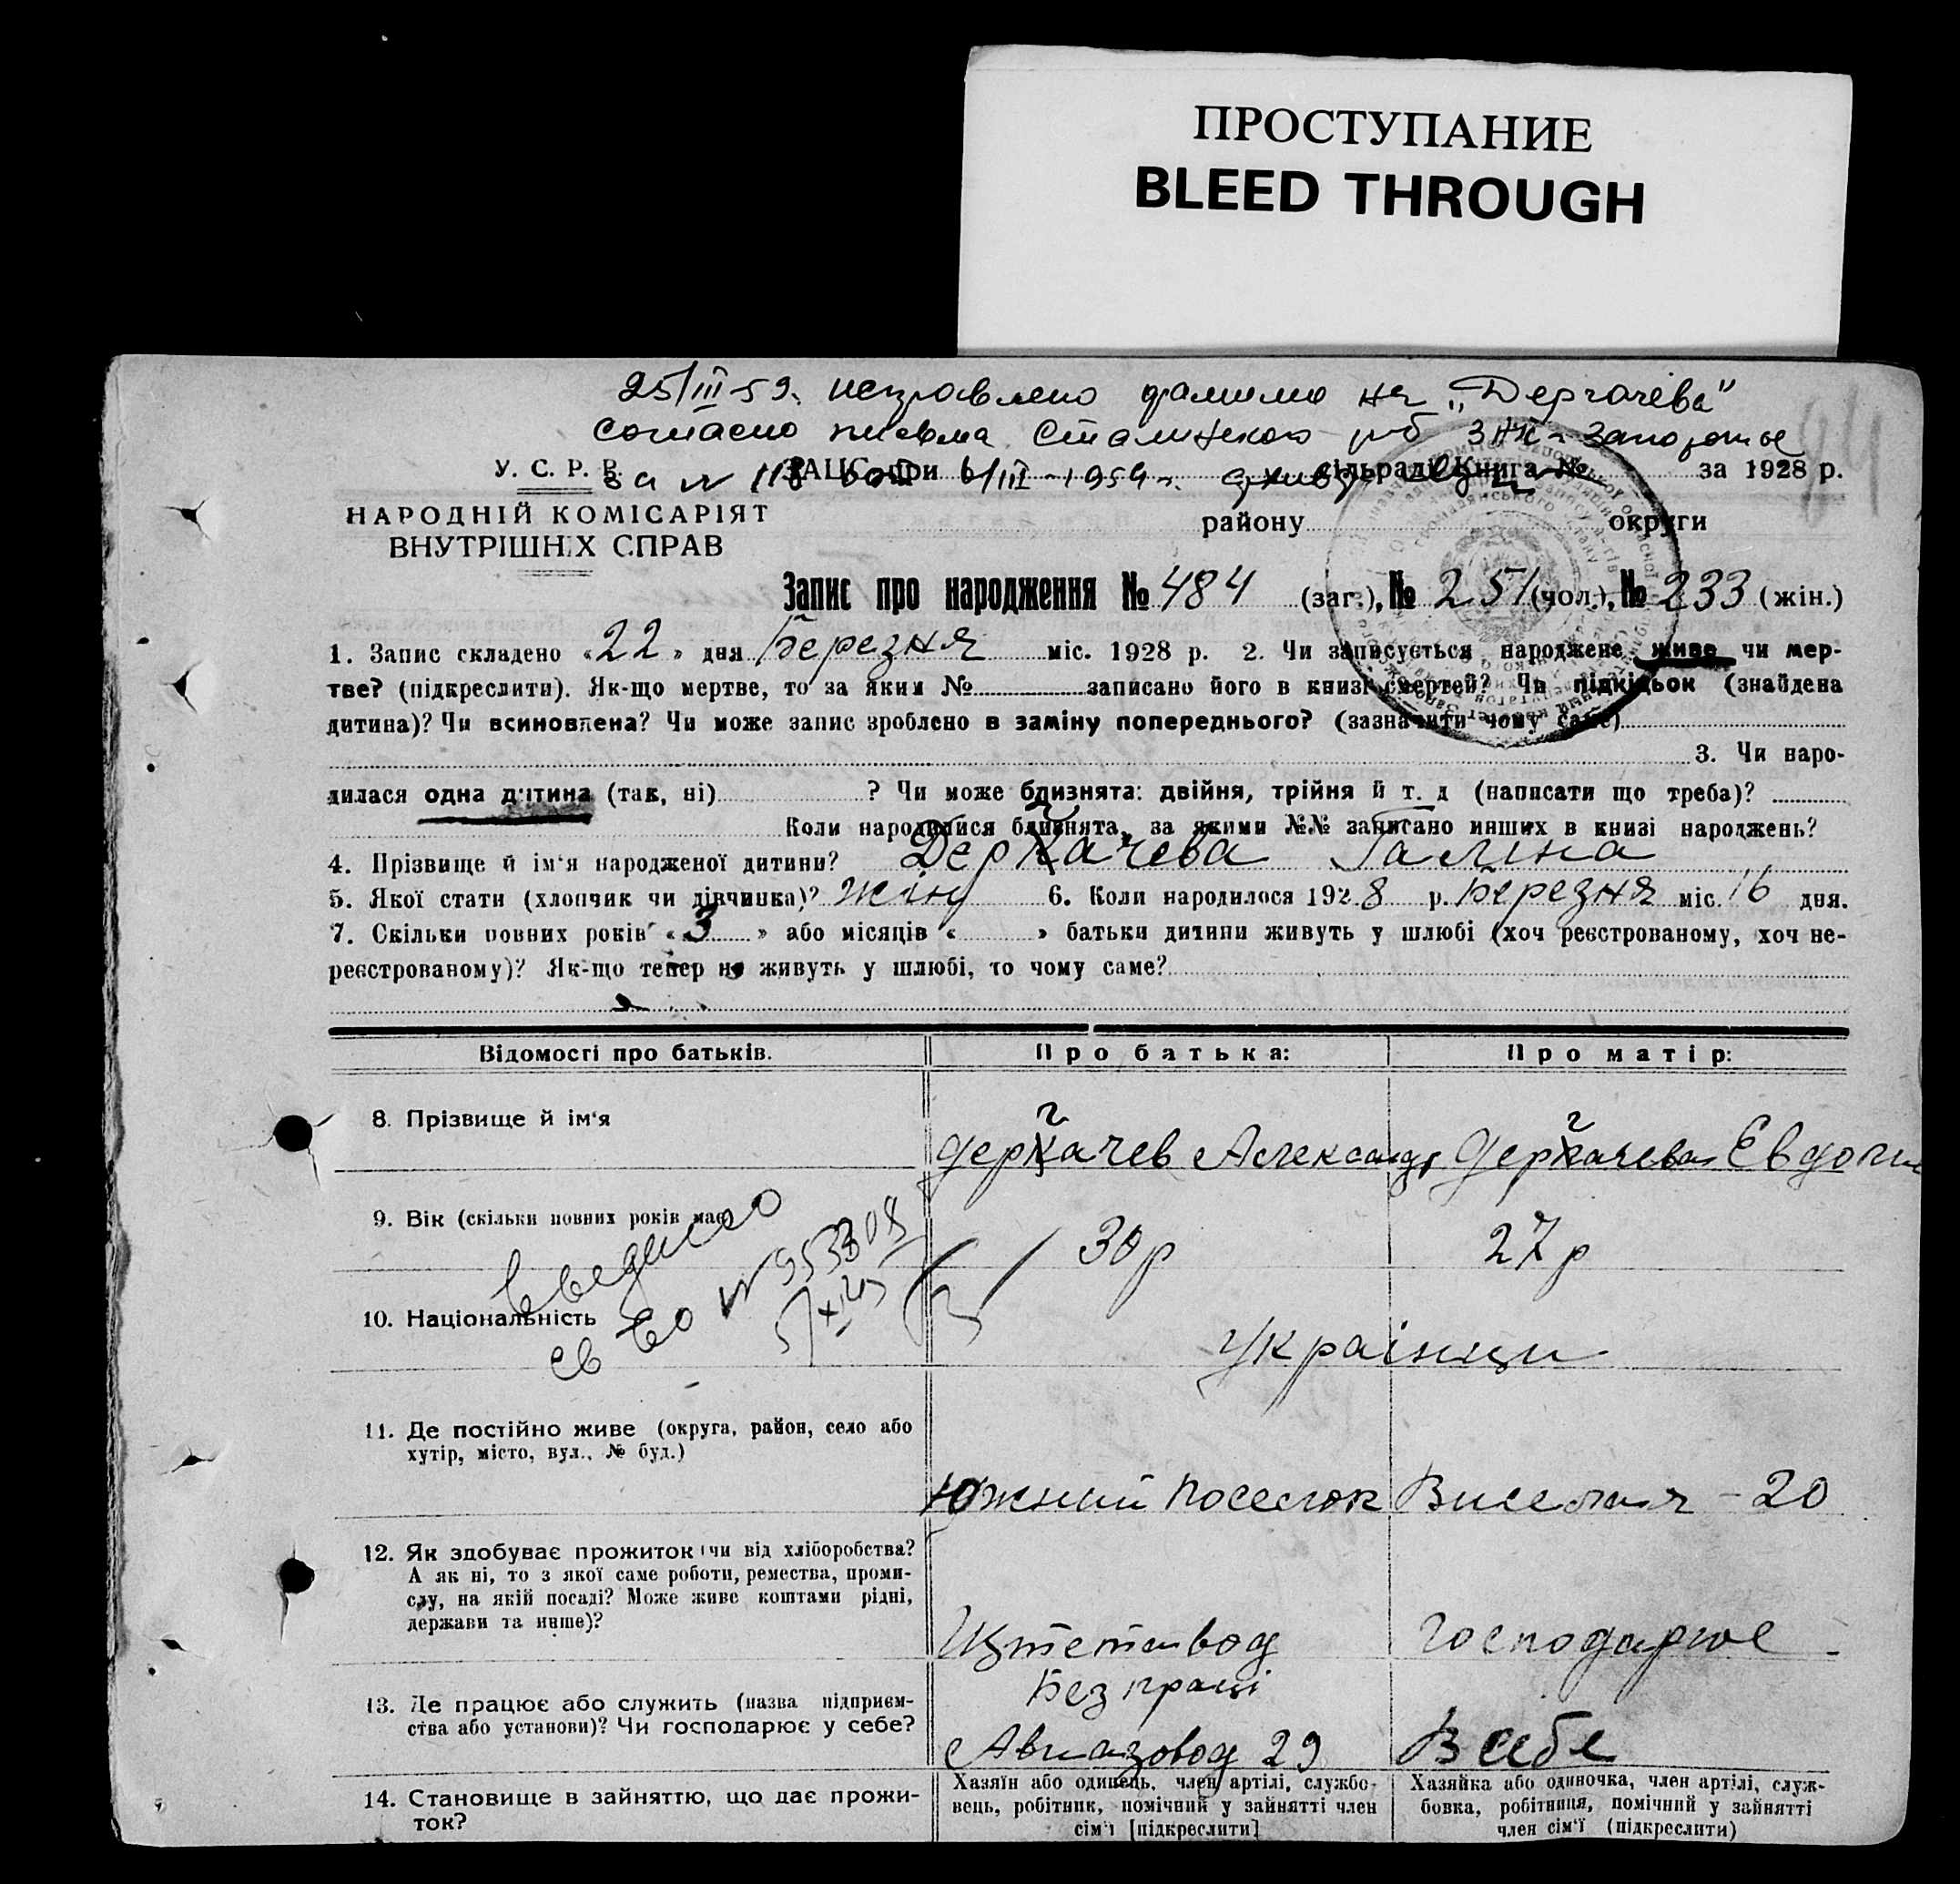 ПРОСТУПАНИЕ
BLEED THROUGH
25/III-59. исправлено фамилию на „Дергачева"
согласно письма Сталинского р/б ЗАГС г. Запорожье
за № 118 от 6/III-1959 г.
У. С. Р. Р. ЗАЦС при сільраді Книга № за 1928 р.
НАРОДНІЙ КОМІСАРІЯТ
району округи
ВНУТРІШНІХ СПРАВ
Запис про народження № 484 (заг.), № 251 (чол.), № 233 (жін.)
1. Запис складено «22» дня Березня міс. 1928 р. 2. Чи записується народжене живе чи мер-
тве? (підкреслити). Як-що мертве, то за яким № записано його в книзі смертей? Чи підкідьок (знайдена
дитина)? Чи всиновлена? Чи може запис зроблено в заміну попереднього? (зазначити чому саме)
3. Чи наро-
дилася одна дитина (так, ні) ? Чи може близнята: двійня, трійня й т. д (написати що треба)?
Коли народилися близнята, за якими №№ записано инших в книзі народжень?
4. Прізвище й ім'я народженої дитини? Держачева Галина
г
5. Якої стати (хлопчик чи дівчинка)? жіну 6. Коли народилося 1928 р. Березня міс. 16 дня.
7. Скільки повних років «3» або місяців « » батьки дитини живуть у шлюбі (хоч реєстрованому, хоч не-
реєстрованому)? Як-що тепер не живуть у шлюбі, то чому саме?
Відомості про батьків. Про батька: Про матір:
г г
8. Прізвище й ім'я Деркачев Александр Деркачева Евдокия
9. Вік (скільки повних років має) 30 р 27 р
выдано
св во № 953308
5/XI
10. Національність Українци
11. Де постійно живе (округа, район, село або
хутір, місто, вул., № буд.)
Южний поселок Виселая - 20
12. Як здобуває прожиток (чи від хліборобства?
А як ні, то з якої саме роботи, ремества, проми-
слу, на якій посаді? Може живе коштами рідні,
держави та инше)?
Господарює
Без праці
13. Де працює або служить (назва підприєм-
ства або установи)? Чи господарює у себе?
Авиазавод 29 В себе
14. Становище в зайняттю, що дає прожи-
ток?
Хазяїн або одинець, член артілі, службо-
вець, робітник, помічний у зайнятті член
сім'ї [підкреслити]
Хазяйка або одиночка, член артілі, служ-
бовка, робітниця, помічний у зайнятті
член сім'ї (підкреслити)